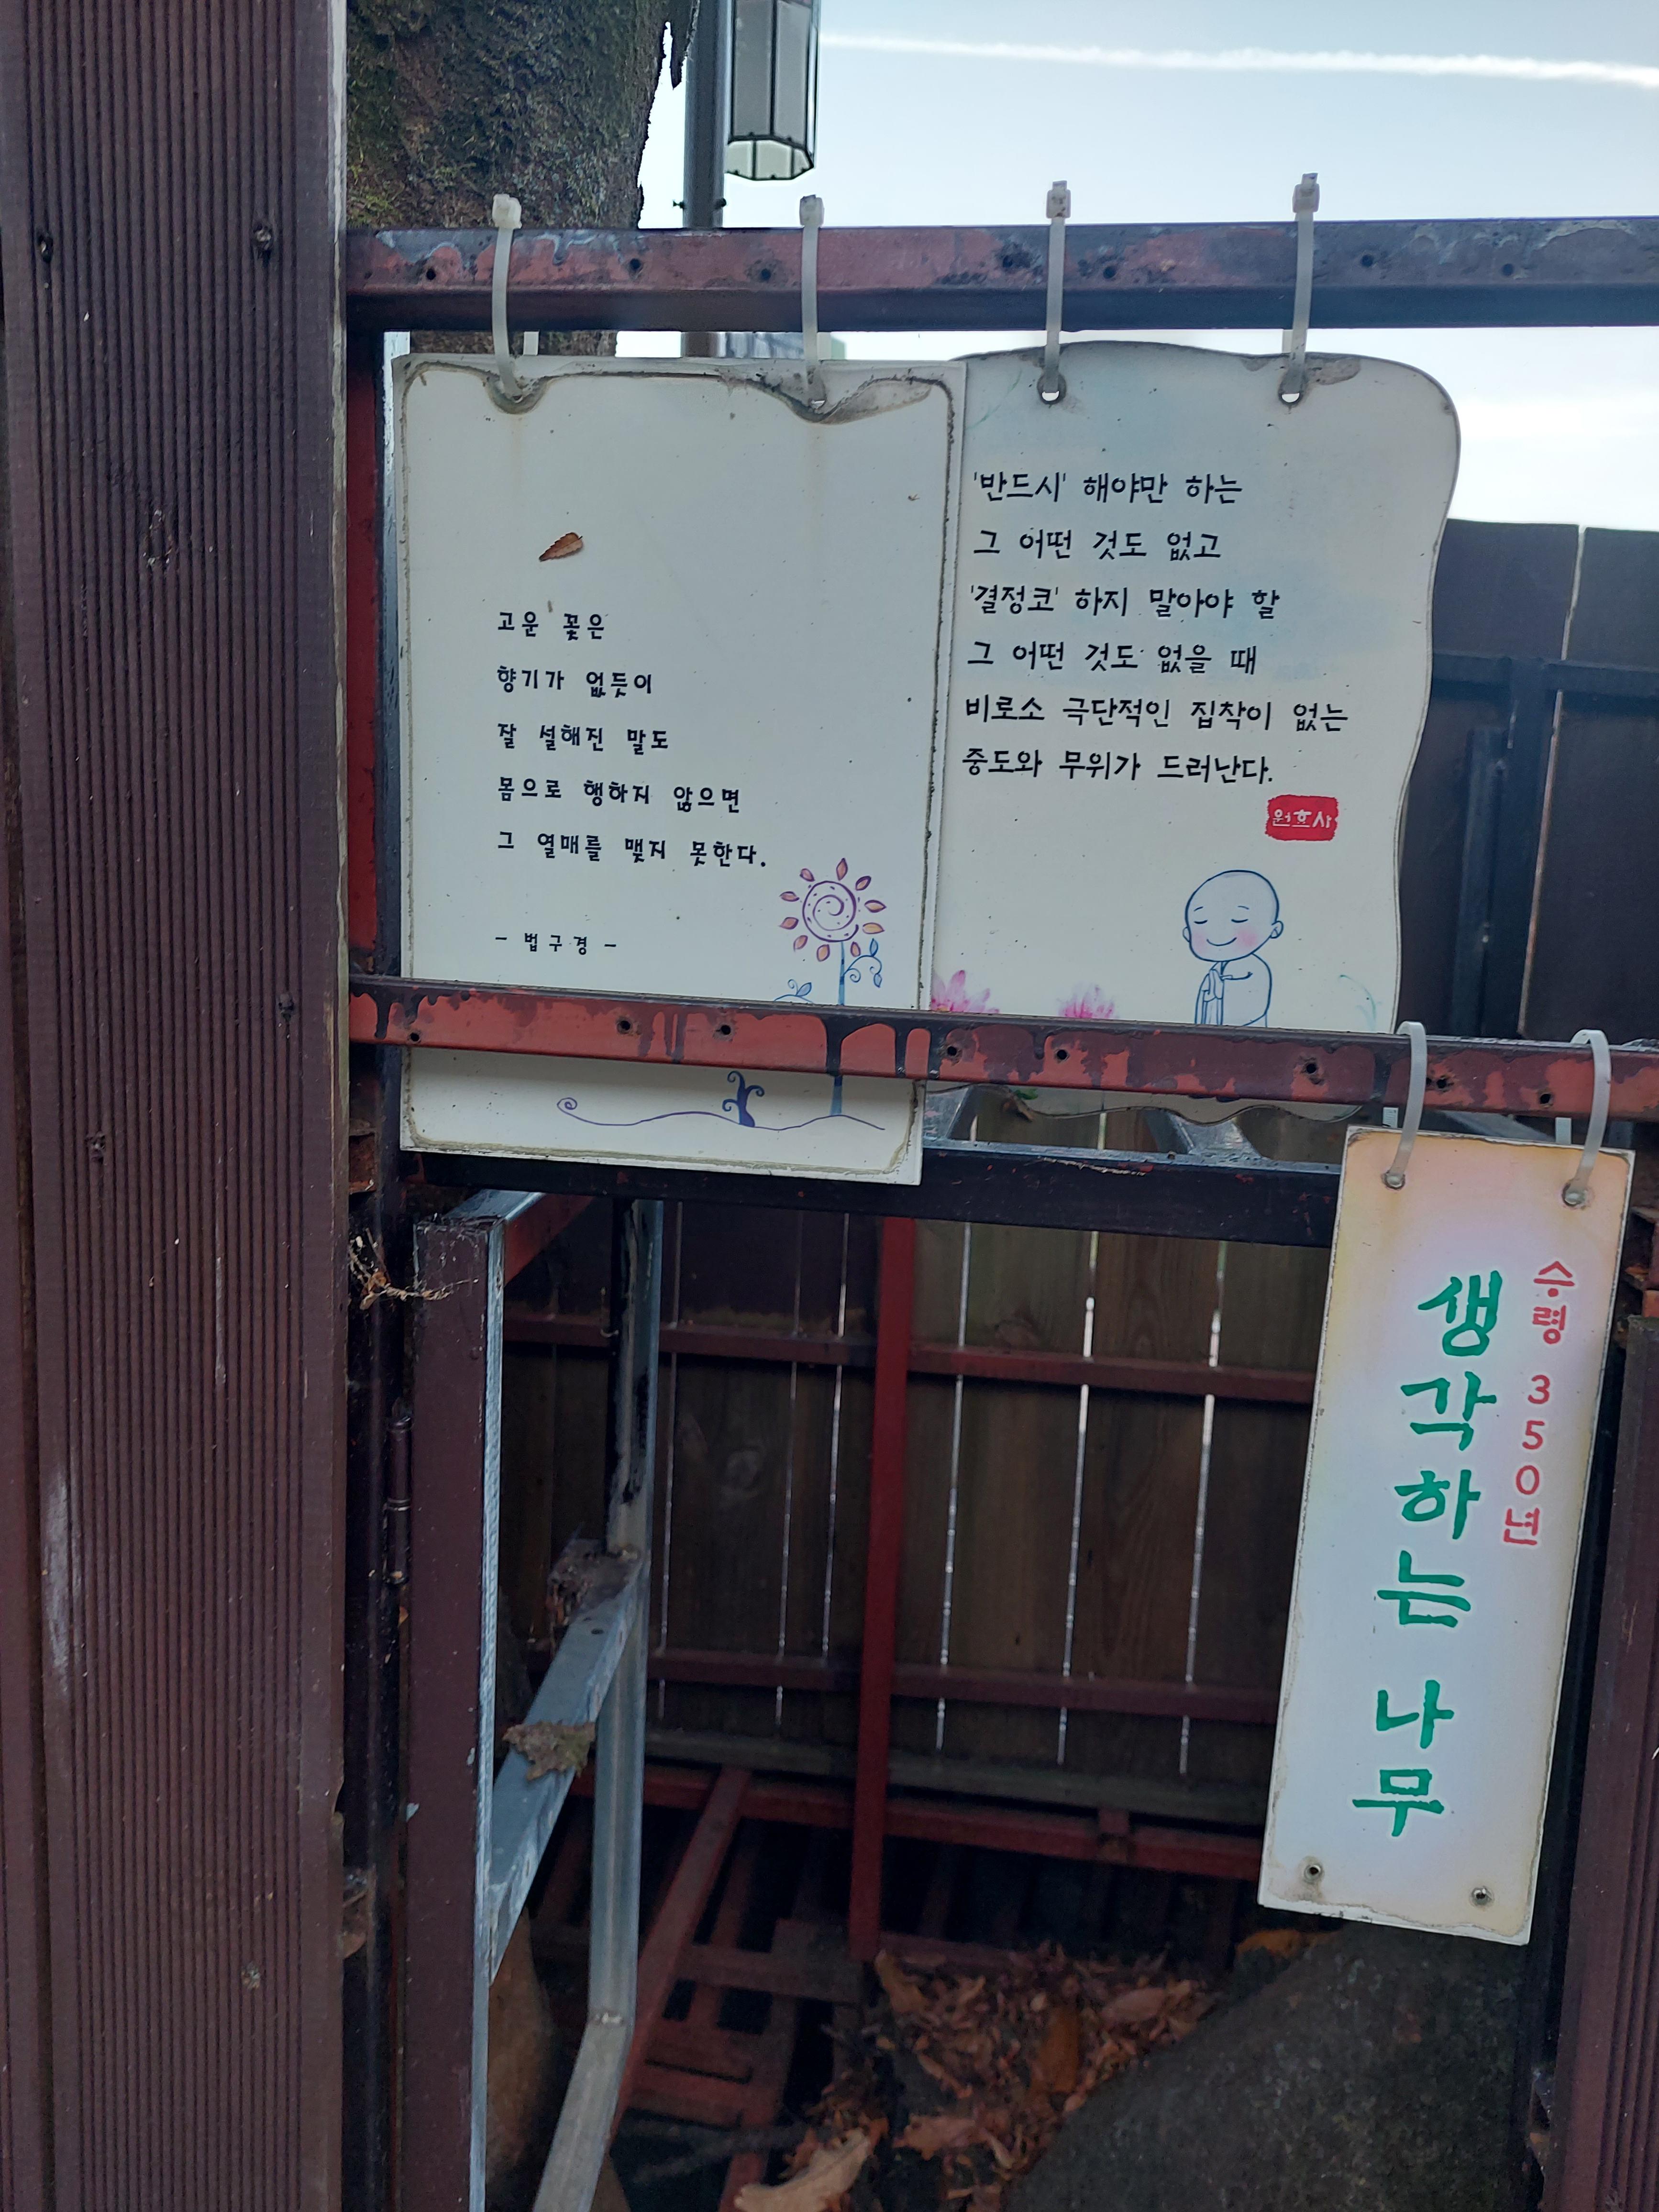 고운 꽃은
향기가 없듯이
잘 설해진 말도
몸으로 행하지 않으면
그 열매를 맺지 못한다.
- 법구경 -
'반드시' 해야만 하는
그 어떤 것도 없고
'결정코' 하지 말아야 할
그 어떤 것도 없을 때
비로소 극단적인 집착이 없는
중도와 무위가 드러난다.
원효사
수령 350년
생각하는 나무